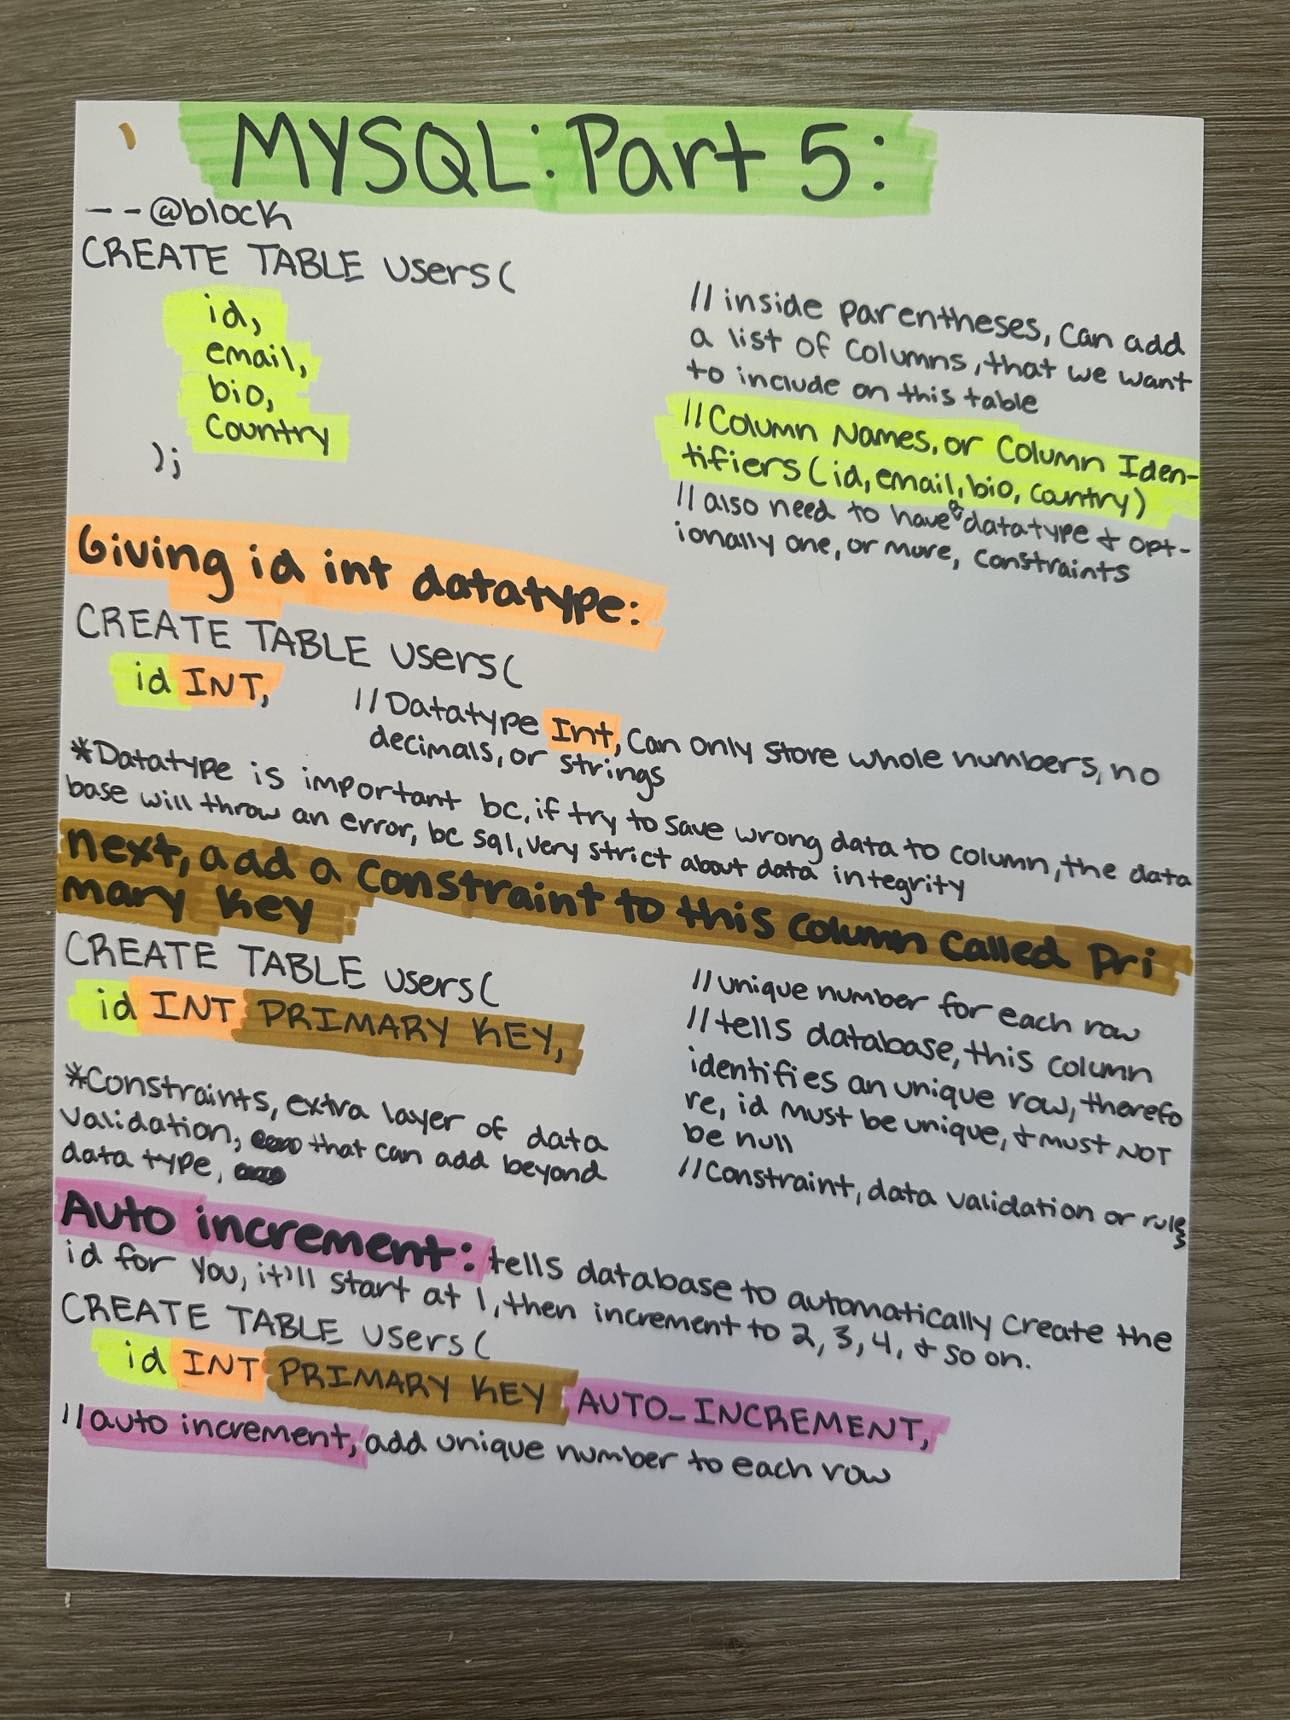 MYSQL: Part 5:
--@block
CREATE TABLE users(
id,
email,
bio,
Country
);
// inside parentheses, can add
a list of columns, that we want
to include on this table
// Column Names, or Column Iden-
tifiers (id, email, bio, country)
// also need to have a datatype & opt-
ionally one, or more, constraints
Giving id int datatype:
CREATE TABLE users(
id INT,
// Datatype Int, can only store whole numbers, no
decimals, or strings
*Datatype is important bc, if try to save wrong data to column, the data
base will throw an error, bc sql, very strict about data integrity
next, add a constraint to this column called Pri
mary Key
CREATE TABLE users(
id INT PRIMARY KEY,
// unique number for each row
// tells database, this column
identifies an unique row, therefo
re, id must be unique, & must NOT
be null
// Constraint, data validation or rules
*Constraints, extra layer of data
validation, that can add beyond
data type,
Auto increment: tells database to automatically create the
id for you, it'll start at 1, then increment to 2, 3, 4, & so on.
CREATE TABLE users(
id INT PRIMARY KEY AUTO_INCREMENT,
// auto increment, add unique number to each row